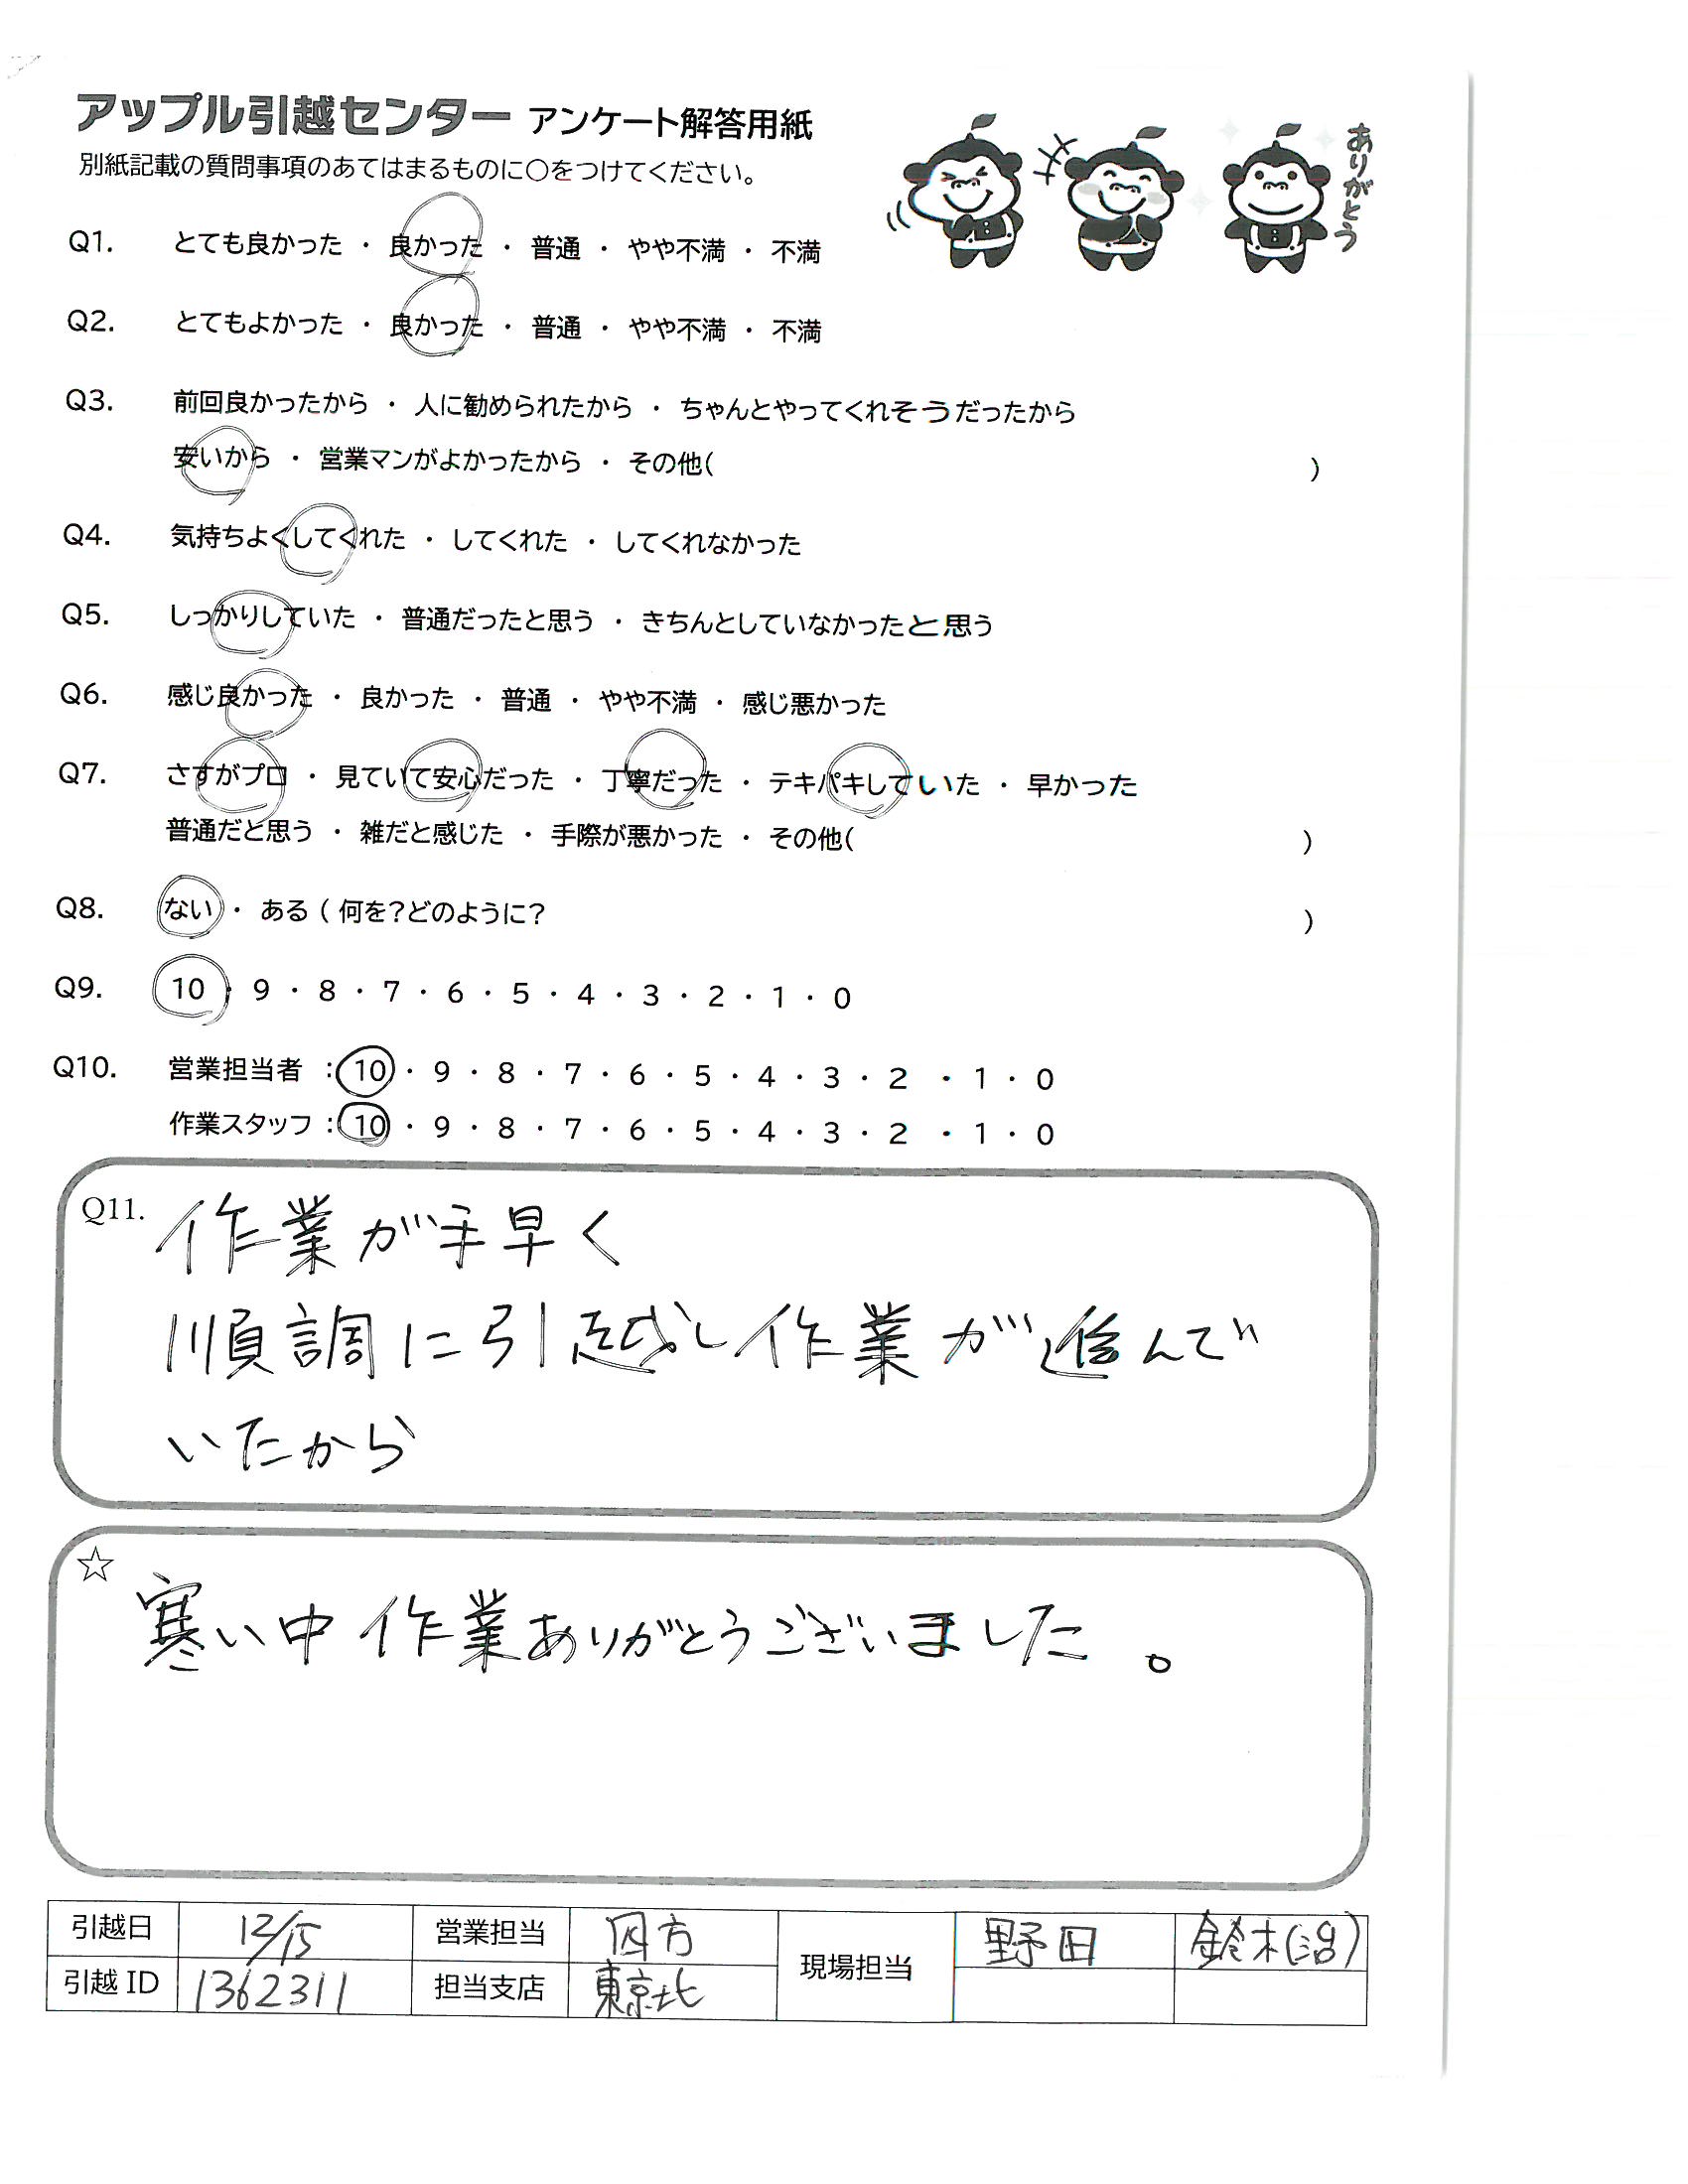 アップル引越センター アンケート解答用紙
別紙記載の質問事項のあてはまるものに○をつけてください。
ありがとう
Q1. とても良かった ・ 良かった ・ 普通 ・ やや不満 ・ 不満
Q2. とてもよかった ・ 良かった ・ 普通 ・ やや不満 ・ 不満
Q3. 前回良かったから ・ 人に勧められたから ・ ちゃんとやってくれそうだったから
安いから ・ 営業マンがよかったから ・ その他( )
Q4. 気持ちよくしてくれた ・ してくれた ・ してくれなかった
Q5. しっかりしていた ・ 普通だったと思う ・ きちんとしていなかったと思う
Q6. 感じ良かった ・ 良かった ・ 普通 ・ やや不満 ・ 感じ悪かった
Q7. さすがプロ ・ 見ていて安心だった ・ 丁寧だった ・ テキパキしていた ・ 早かった
普通だと思う ・ 雑だと感じた ・ 手際が悪かった ・ その他( )
Q8. ない ・ ある ( 何を？どのように？ )
Q9. 10 ・ 9 ・ 8 ・ 7 ・ 6 ・ 5 ・ 4 ・ 3 ・ 2 ・ 1 ・ 0
Q10. 営業担当者 : 10 ・ 9 ・ 8 ・ 7 ・ 6 ・ 5 ・ 4 ・ 3 ・ 2 ・ 1 ・ 0
作業スタッフ : 10 ・ 9 ・ 8 ・ 7 ・ 6 ・ 5 ・ 4 ・ 3 ・ 2 ・ 1 ・ 0
Q11. 作業が手早く
順調に引越し作業が進んで
いたから
☆ 寒い中作業ありがとうございました。
引越日 12/15 営業担当 四方 現場担当 野田 鈴木(浩)
引越 ID 1362311 担当支店 東京北